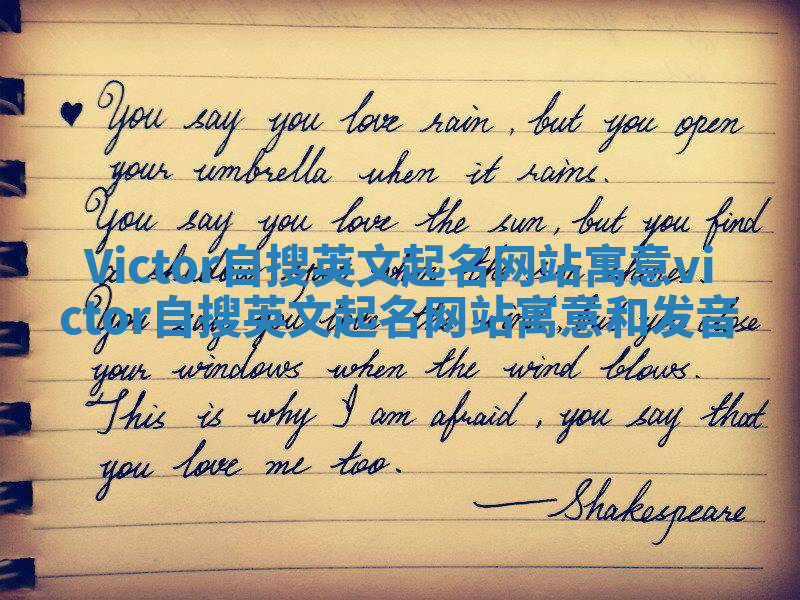 ♥ You say you love rain, but you open
your umbrella when it rains.
You say you love the sun, but you find
a shadow when the sun shines.
Victor自搜英文起名网站寓意vi
ctor自搜英文起名网站寓意和发音
You say you love the wind, but you close
your windows when the wind blows.
This is why I am afraid, you say that
you love me too.
— Shakespeare